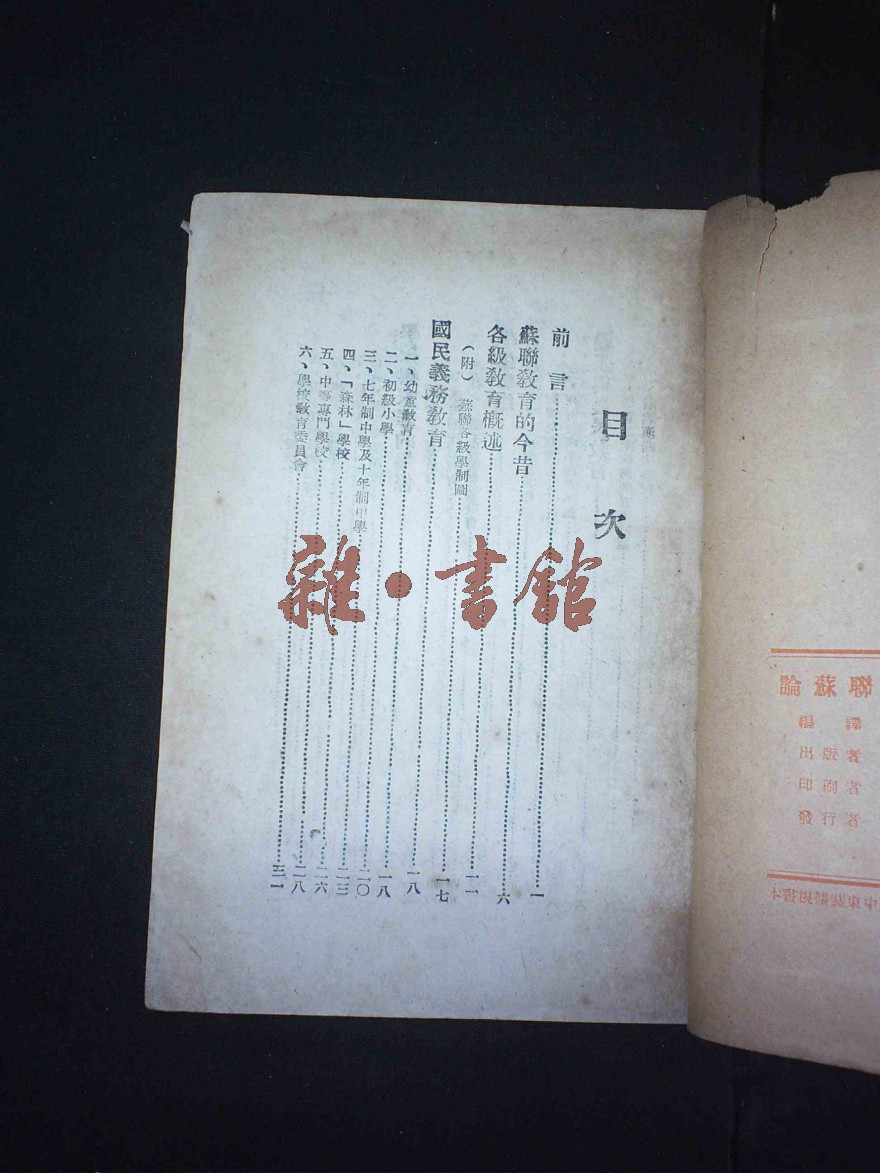 目次
前言……一
蘇聯教育的今昔……六
各級教育概述……一一
（附）蘇聯各級學制圖……一七
國民義務教育……一八
一、幼童教育……一八
二、初級小學……二〇
三、七年制中學及十年制中學……二三
四、「森林」學校……二六
五、中等專門學校……二八
六、學校教育委員會……三一
雜·書館
論蘇聯
編譯
出版者
印刷者
發行者